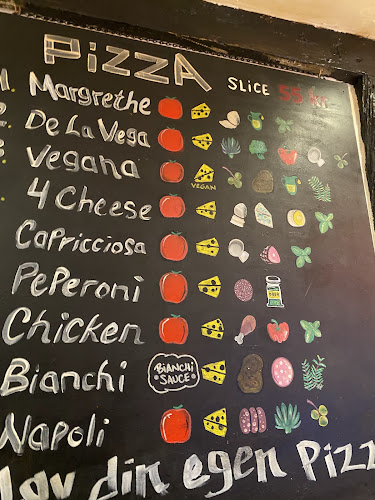 PiZZA SLICE 55 kr.
1. Margrethe
2. De La Vega
3. Vegana VEGAN
4 Cheese
Capricciosa
PePeroni
Chicken
Bianchi BiANCHi SAUCE
Napoli
Lav din egen Pizz